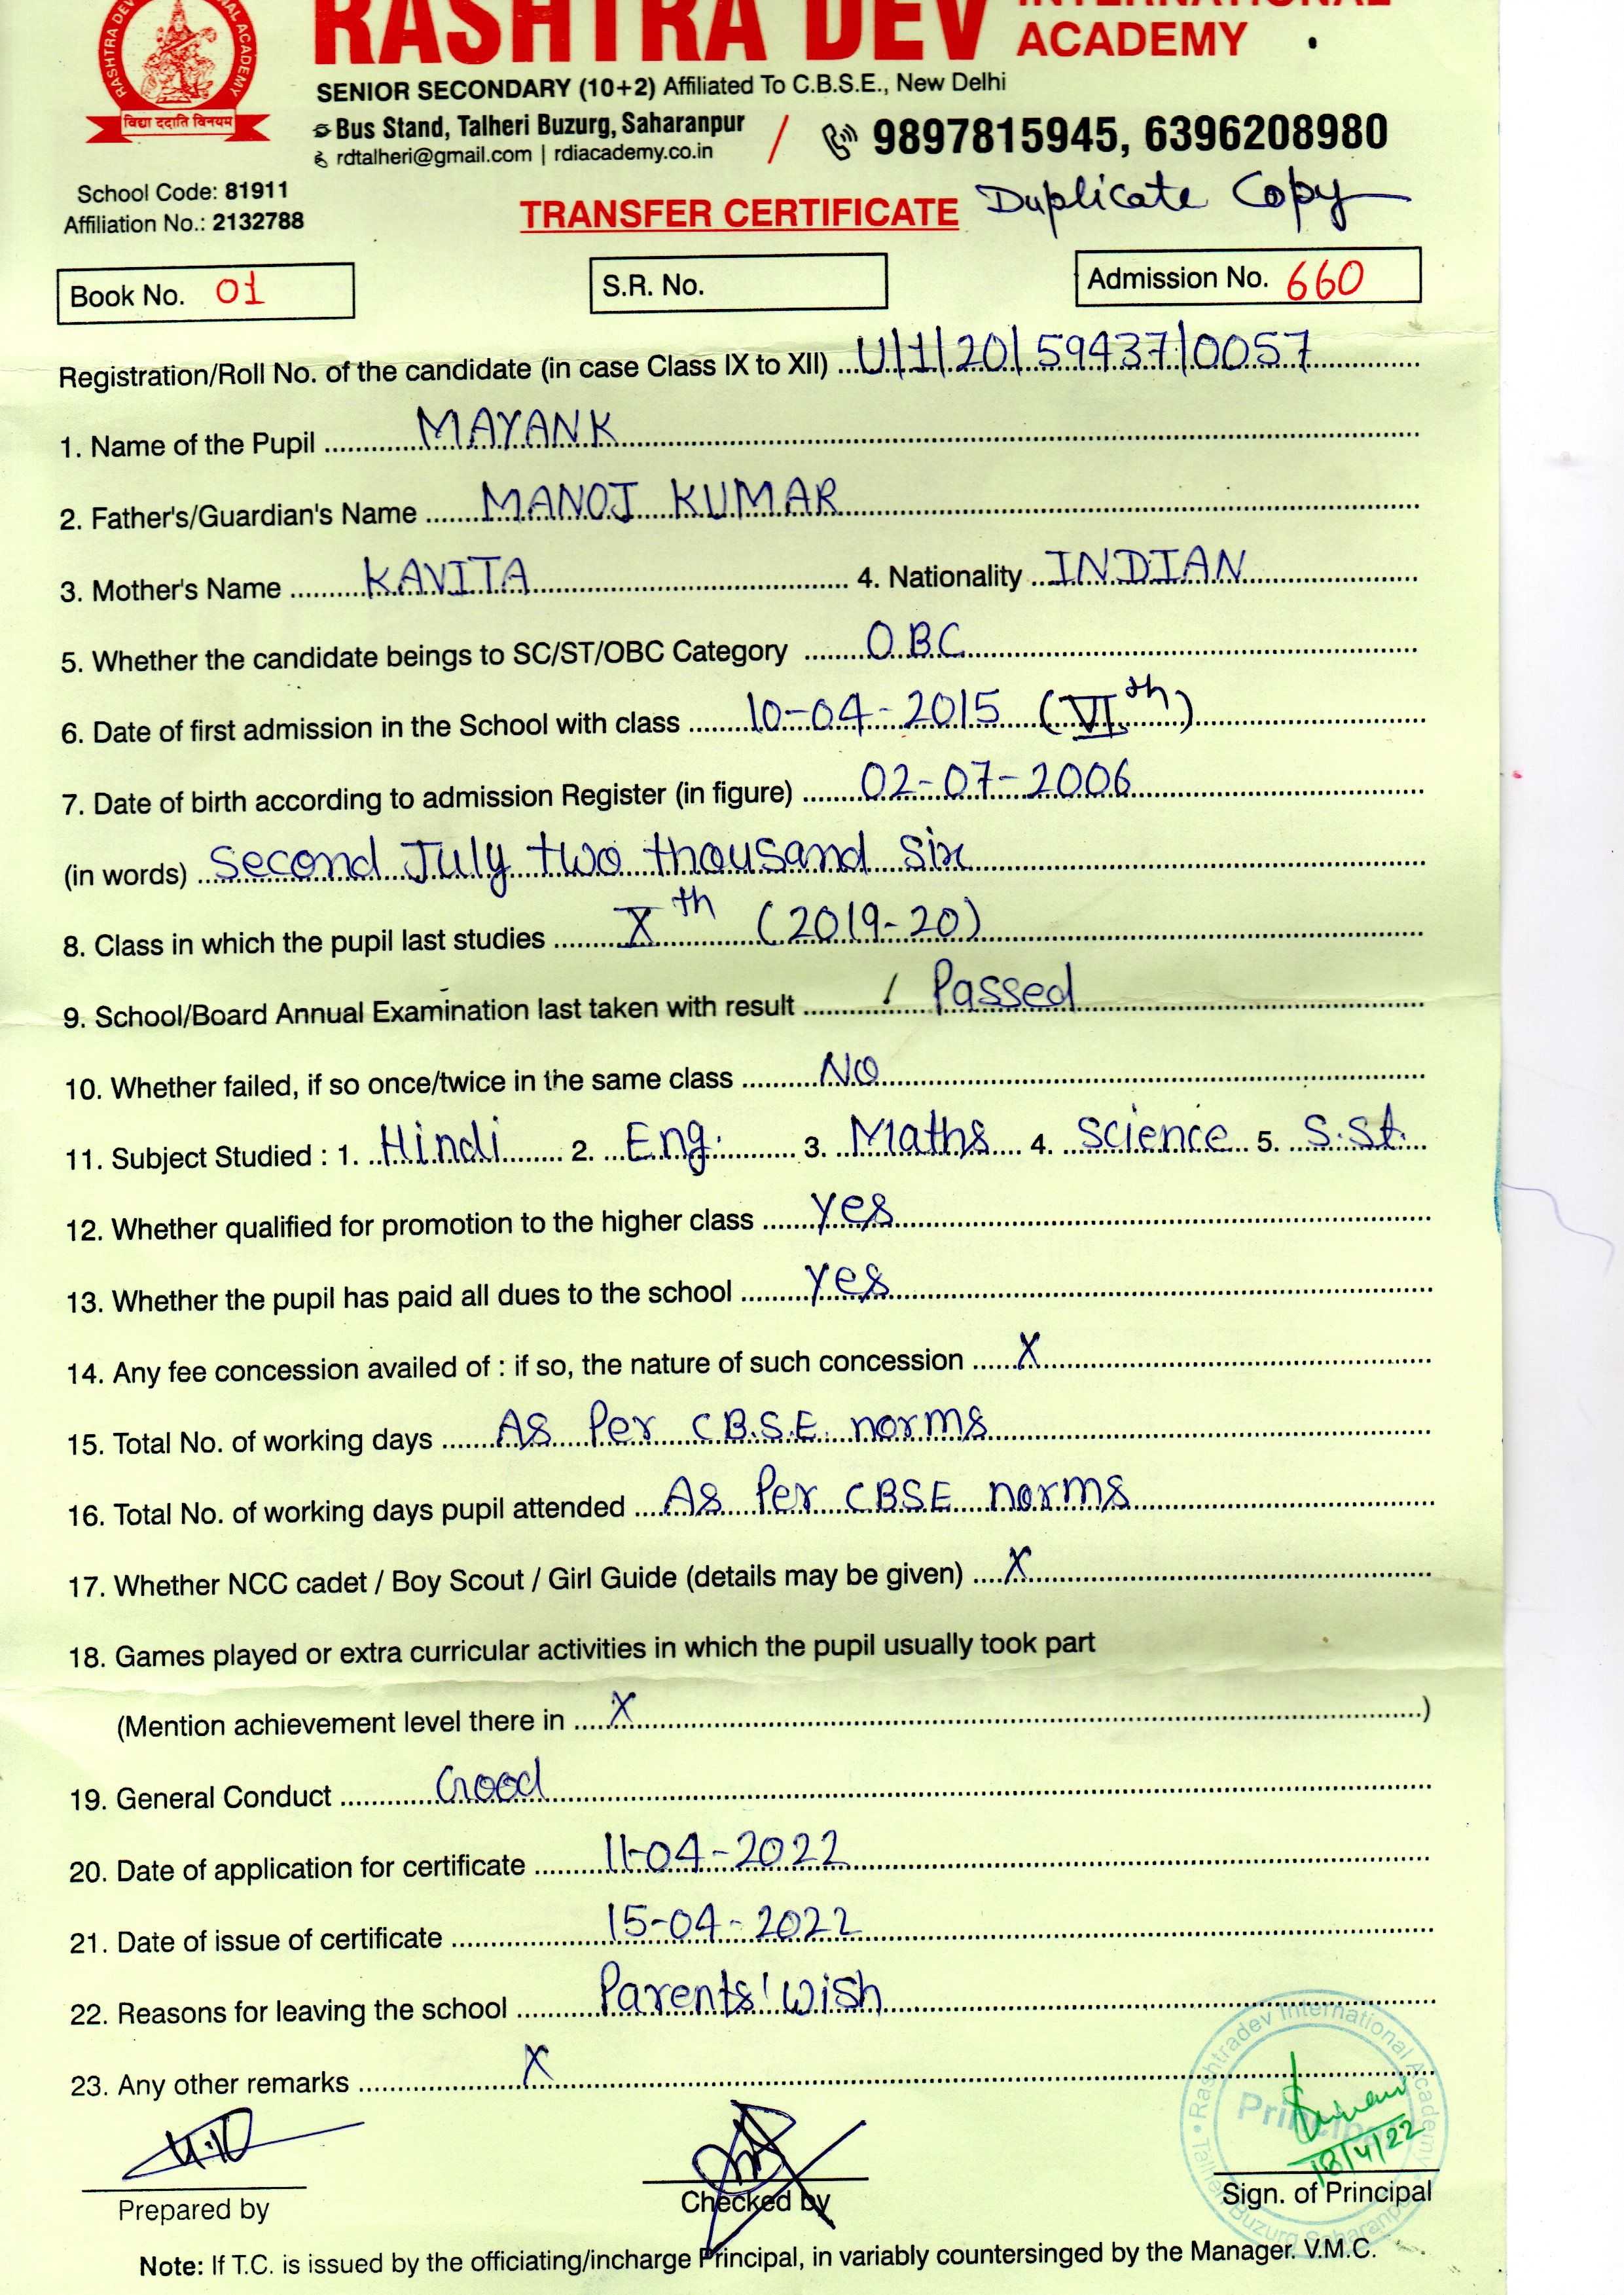 RASHTRA DEV INTERNATIONAL
ACADEMY
विद्या ददाति विनयम
SENIOR SECONDARY (10+2) Affiliated To C.B.S.E., New Delhi
Bus Stand, Talheri Buzurg, Saharanpur / 9897815945, 6396208980
rdtalheri@gmail.com | rdiacademy.co.in
School Code: 81911
Affiliation No.: 2132788
TRANSFER CERTIFICATE Duplicate Copy
Book No. 01 S.R. No. Admission No. 660
Registration/Roll No. of the candidate (in case Class IX to XII) U/1/20/59437/0057
1. Name of the Pupil MAYANK
2. Father's/Guardian's Name MANOJ KUMAR
3. Mother's Name KAVITA 4. Nationality INDIAN
5. Whether the candidate beings to SC/ST/OBC Category OBC
6. Date of first admission in the School with class 10-04-2015 (VIth)
7. Date of birth according to admission Register (in figure) 02-07-2006
(in words) Second July two thousand six
8. Class in which the pupil last studies Xth (2019-20)
9. School/Board Annual Examination last taken with result Passed
10. Whether failed, if so once/twice in the same class NO
11. Subject Studied : 1. Hindi 2. Eng. 3. Maths 4. Science 5. S.St.
12. Whether qualified for promotion to the higher class yes
13. Whether the pupil has paid all dues to the school yes
14. Any fee concession availed of : if so, the nature of such concession X
15. Total No. of working days As Per C.B.S.E. norms
16. Total No. of working days pupil attended As Per CBSE norms
17. Whether NCC cadet / Boy Scout / Girl Guide (details may be given) X
18. Games played or extra curricular activities in which the pupil usually took part
(Mention achievement level there in X)
19. General Conduct Good
20. Date of application for certificate 11-04-2022
21. Date of issue of certificate 15-04-2022
22. Reasons for leaving the school Parents' wish
23. Any other remarks X
Rashtradev International Academy
Talheri Buzurg Saharanpur
Principal
18/4/22
Prepared by Checked by Sign. of Principal
Note: If T.C. is issued by the officiating/incharge Principal, in variably countersinged by the Manager. V.M.C.